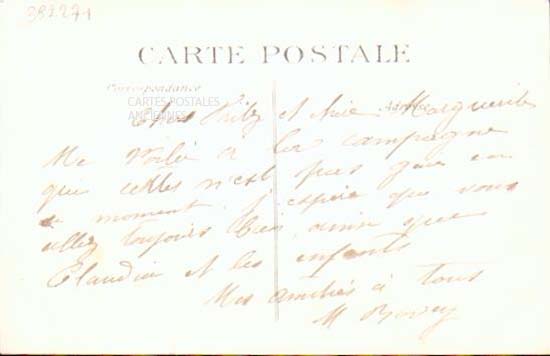 392271
CARTE POSTALE
Correspondance
CARTES POSTALES
ANCIENNES
Adresse
Cher et Chère Marguerite
Me Voilà à la campagne
qui certes n'est pas gaie en
ce moment. J'espère que vous
allez toujours bien, ainsi que
Claudia et les enfants
Mes amitiés à tous
M